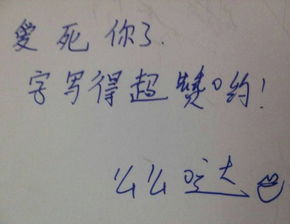 爱死你了.
字写得超赞哟!
么么哒